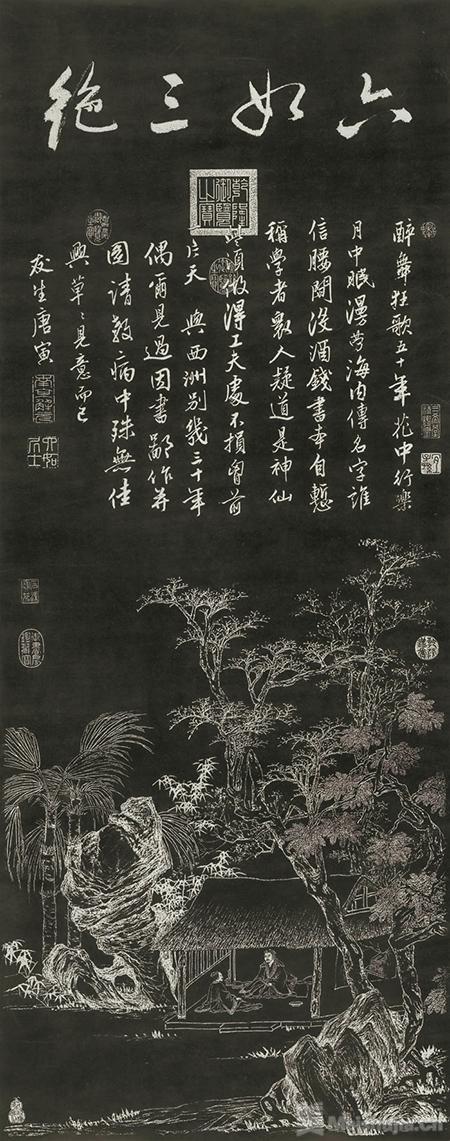 六如三絕
乾隆御覽之寶
醉舞狂歌五十年花中行樂
月中眠漫勞海内傳名字誰
信腰間沒酒錢書本自慙
稱學者衆人疑道是神仙
些須做得工夫處不損胷前
一片天 與西洲別幾三十年
偶爾見過因書鄙作并
圖請教病中殊無佳
興草〻見意而已
友生唐寅
南京解元
六如居士